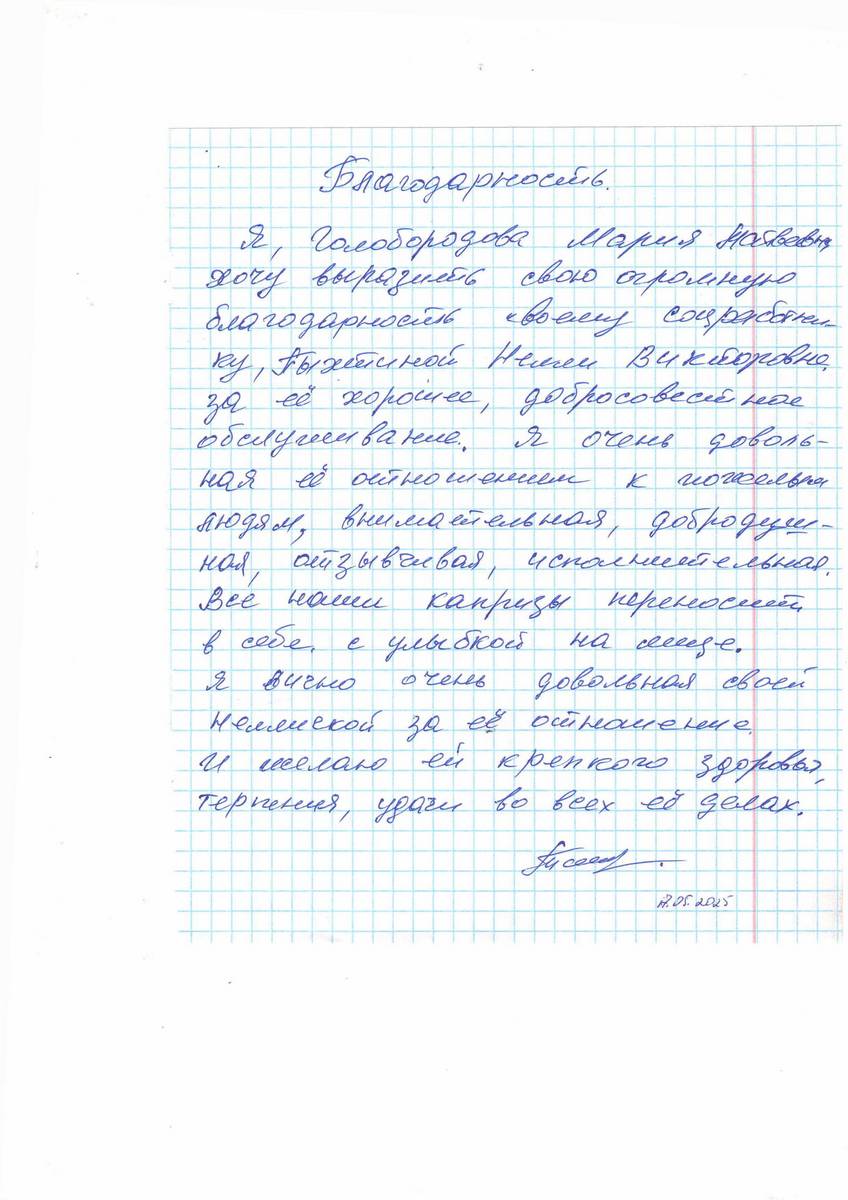 Благодарность.
Я, Голобородова Мария Матвеевна,
хочу выразить свою огромную
благодарность своему соцработни-
ку, Пыхтиной Нелли Викторовне,
за её хорошее, добросовестное
обслуживание. Я очень доволь-
ная её отношением к пожелым
людям, внимательная, добродуш-
ная, отзывчивая, исполнительная.
Все наши капризы переносит
в себе. с улыбкой на лице.
Я лично очень довольная своей
Неллиской за её отношение.
И желаю ей крепкого здоровья,
терпения, удачи во всех её делах.
05.2025